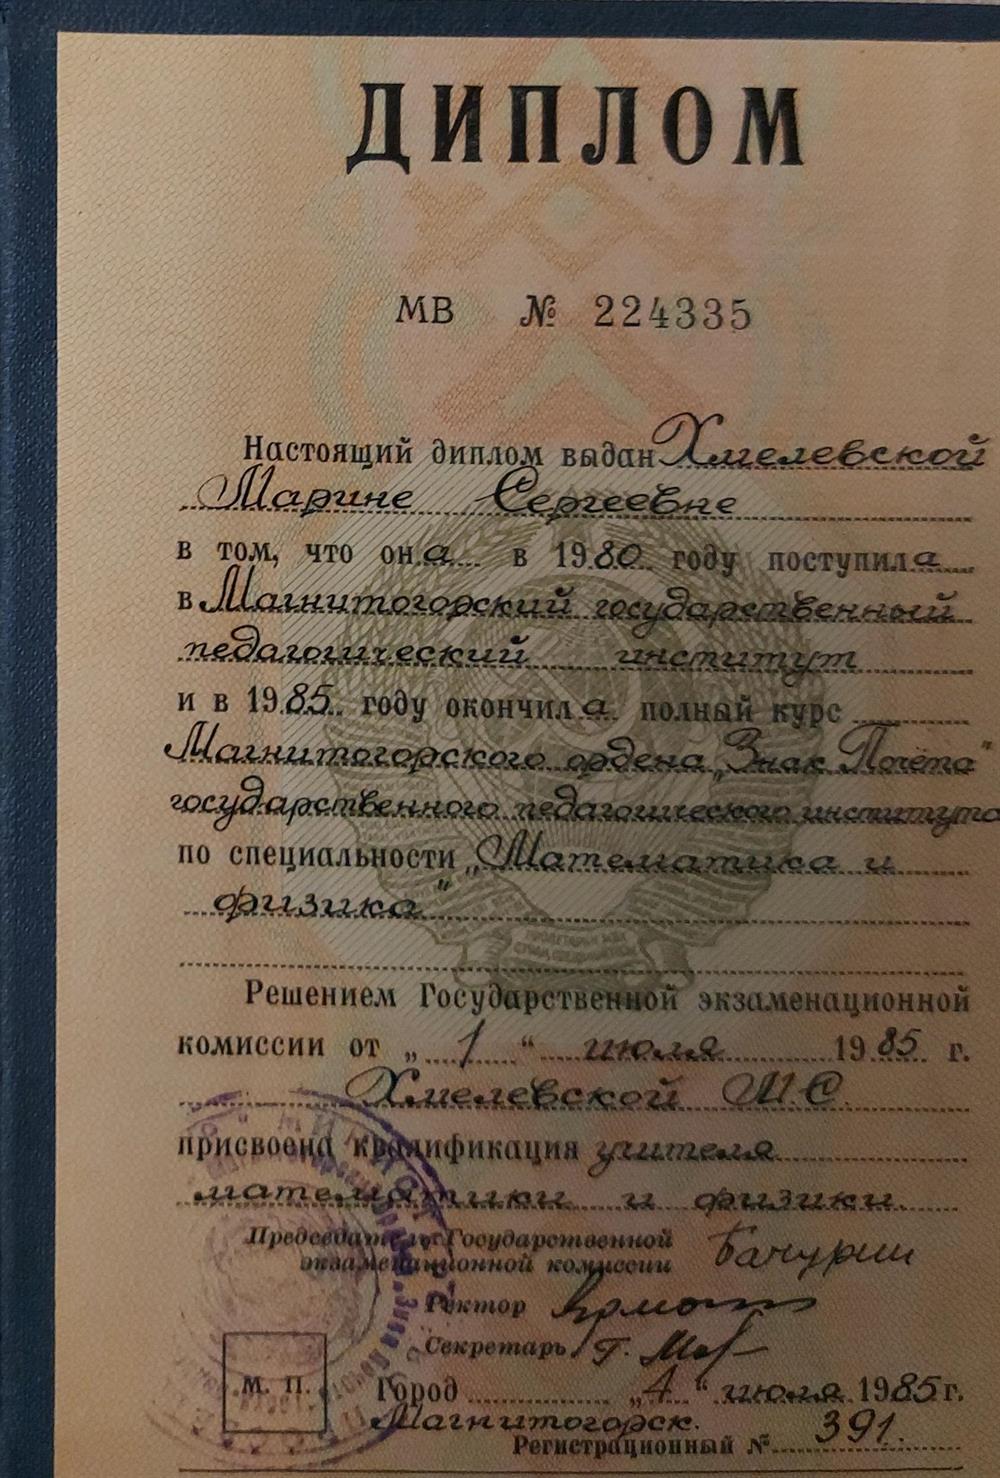 ДИПЛОМ
МВ № 224335
Настоящий диплом выдан Хмелевской
Марине Сергеевне
в том, что она в 1980 году поступила
в Магнитогорский государственный
педагогический институт
и в 1985 году окончила полный курс
Магнитогорского ордена „Знак Почёта"
государственного педагогического института
по специальности „Математика и
физика"
Решением Государственной экзаменационной
комиссии от „1" июля 1985 г.
Хмелевской М С.
присвоена квалификация учителя
математики и физики.
Председатель Государственной
экзаменационной комиссии
Ректор
Секретарь
М. П.
Город „4" июля 1985 г.
Магнитогорск.
Регистрационный № 391.